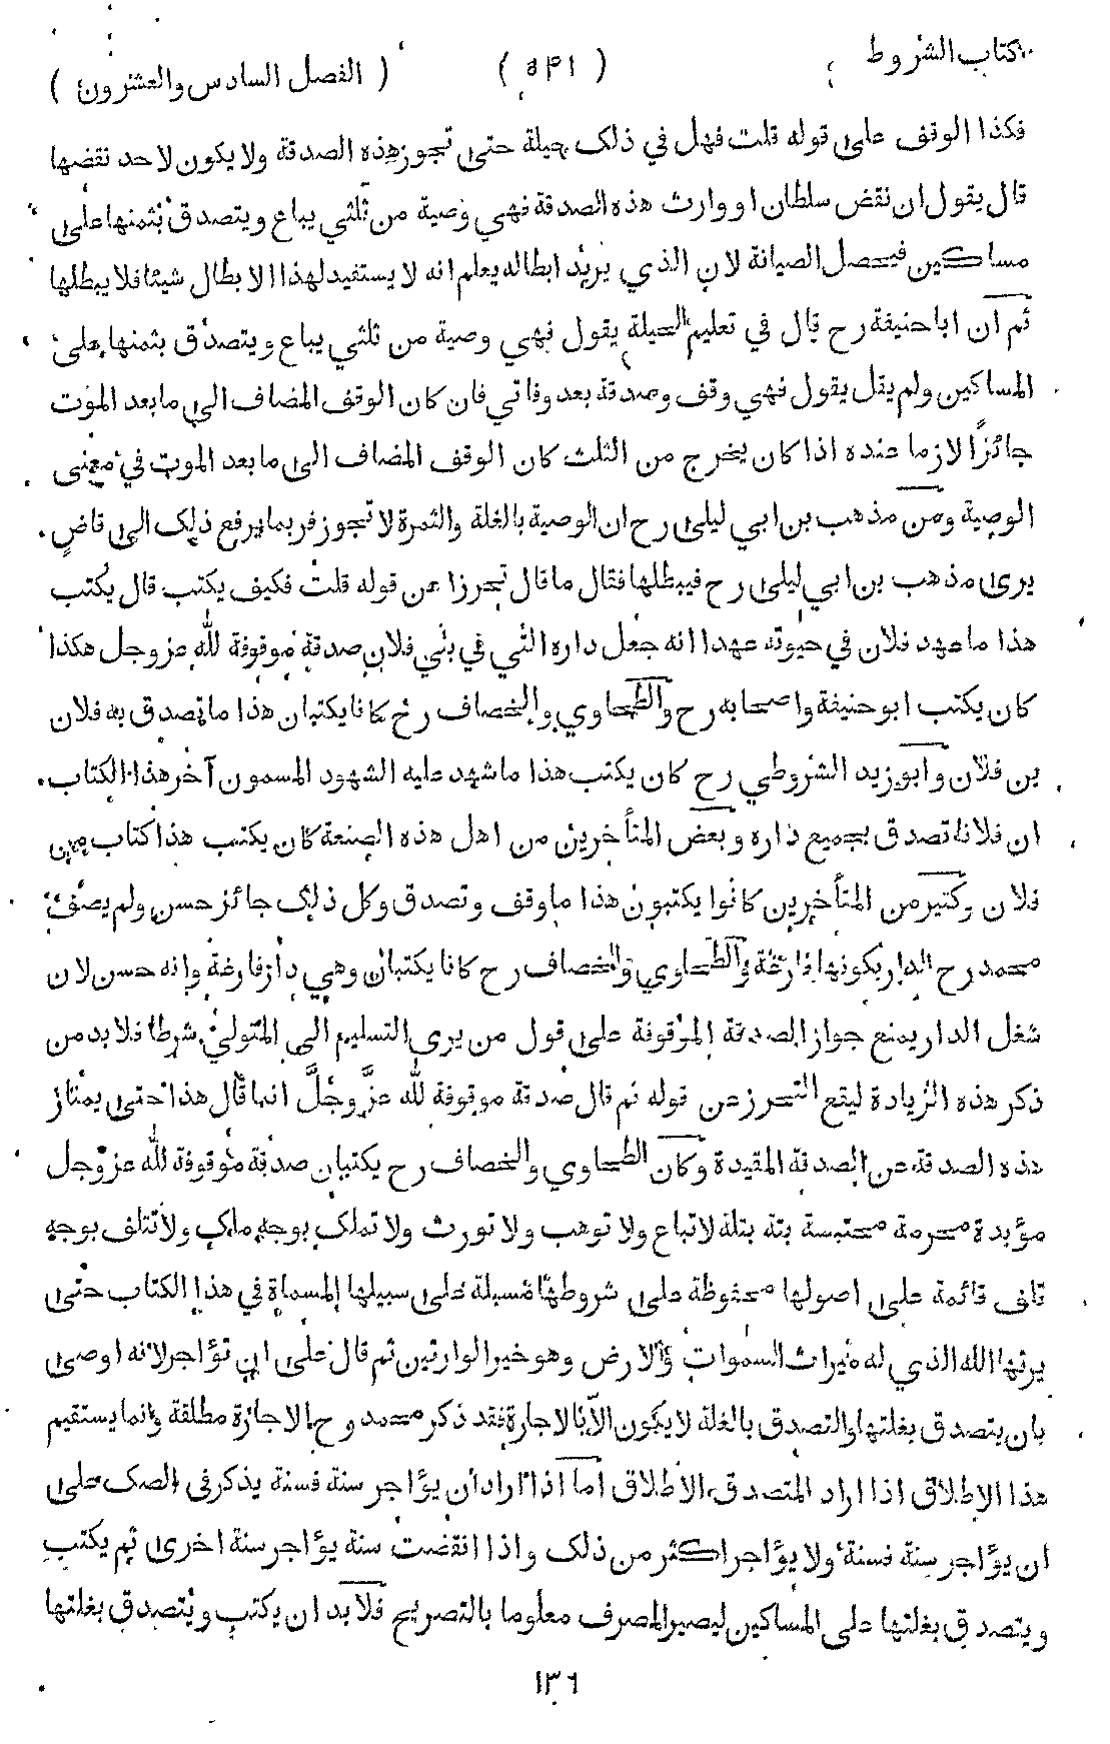 كتاب الشروط ( ٥٣١ ) ( الفصل السادس والعشرون )
فكذا الوقف على قوله قلت فهل في ذلك حيلة حتى تجوز هذه الصدقة ولا يكون لاحد نقضها
قال يقول ان نقض سلطان او وارث هذه الصدقة فهي وصية من ثلثي يباع ويتصدق بثمنها على
مساكين فيحصل الصيانة لان الذي يريد ابطاله يعلم انه لا يستفيد لهذا الابطال شيئا فلا يبطلها
ثم ان ابا حنيفة رح قال في تعليم الحيلة يقول فهي وصية من ثلثي يباع ويتصدق بثمنها على
المساكين ولم يقل يقول فهي وقف وصدقة بعد وفاتي فان كان الوقف المضاف الى ما بعد الموت
جائزًا لازما عنده اذا كان يخرج من الثلث كان الوقف المضاف الى ما بعد الموت في معنى
الوصية ومن مذهب بن ابي ليلى رح ان الوصية بالغلة والثمرة لا تجوز فربما يرفع ذلك الى قاضٍ
يرى مذهب بن ابي ليلى رح فيبطلها فقال ما قال تحرزا عن قوله قلت فكيف يكتب قال يكتب
هذا ما عهد فلان في حيوته عهدا انه جعل داره التي في بني فلان صدقة موقوفة لله عز وجل هكذا
كان يكتب ابو حنيفة واصحابه رح والطحاوي والخصاف رح كانا يكتبان هذا ما تصدق به فلان
بن فلان وابو زيد الشروطي رح كان يكتب هذا ما شهد عليه الشهود المسمون آخر هذا الكتاب
ان فلانا تصدق بجميع داره وبعض المتأخرين من اهل هذه الصنعة كان يكتب هذا كتاب من
فلان وكثير من المتأخرين كانوا يكتبون هذا ما وقف وتصدق وكل ذلك جائز حسن ولم يصف
محمد رح الدار بكونها فارغة والطحاوي والخصاف رح كانا يكتبان وهي دار فارغة وانه حسن لان
شغل الدار يمنع جواز الصدقة الموقوفة على قول من يرى التسليم الى المتولي شرطا فلا بد من
ذكر هذه الزيادة ليقع التحرز عن قوله ثم قال صدقة موقوفة لله عزَّ وجلَّ انما قال هذا حتى يمتاز
هذه الصدقة عن الصدقة المقيدة وكان الطحاوي والخصاف رح يكتبان صدقة موقوفة لله عز وجل
مؤبدة محرمة محتبسة بتة بتلة لا تباع ولا توهب ولا تورث ولا تملك بوجه ملك ولا تتلف بوجه
تلف قائمة على اصولها محفوظة على شروطها مسبلة على سبيلها المسماة في هذا الكتاب حتى
يرثها الله الذي له ميراث السموات والارض وهو خير الوارثين ثم قال على ان تؤاجر لانه اوصى
بان يتصدق بغلتها والتصدق بالغلة لا يكون الا بالاجارة فقد ذكر محمد رح الاجازة مطلقة وانما يستقيم
هذا الاطلاق اذا اراد المتصدق الاطلاق اما اذا اراد ان يؤاجر سنة فسنة يذكر في الصك على
ان يؤاجر سنة فسنة ولا يؤاجر اكثر من ذلك واذا انقضت سنة يؤاجر سنة اخرى ثم يكتب
ويتصدق بغلتها على المساكين ليصير المصرف معلوما بالتصريح فلا بد ان يكتب ويتصدق بغلتها
١٣٦